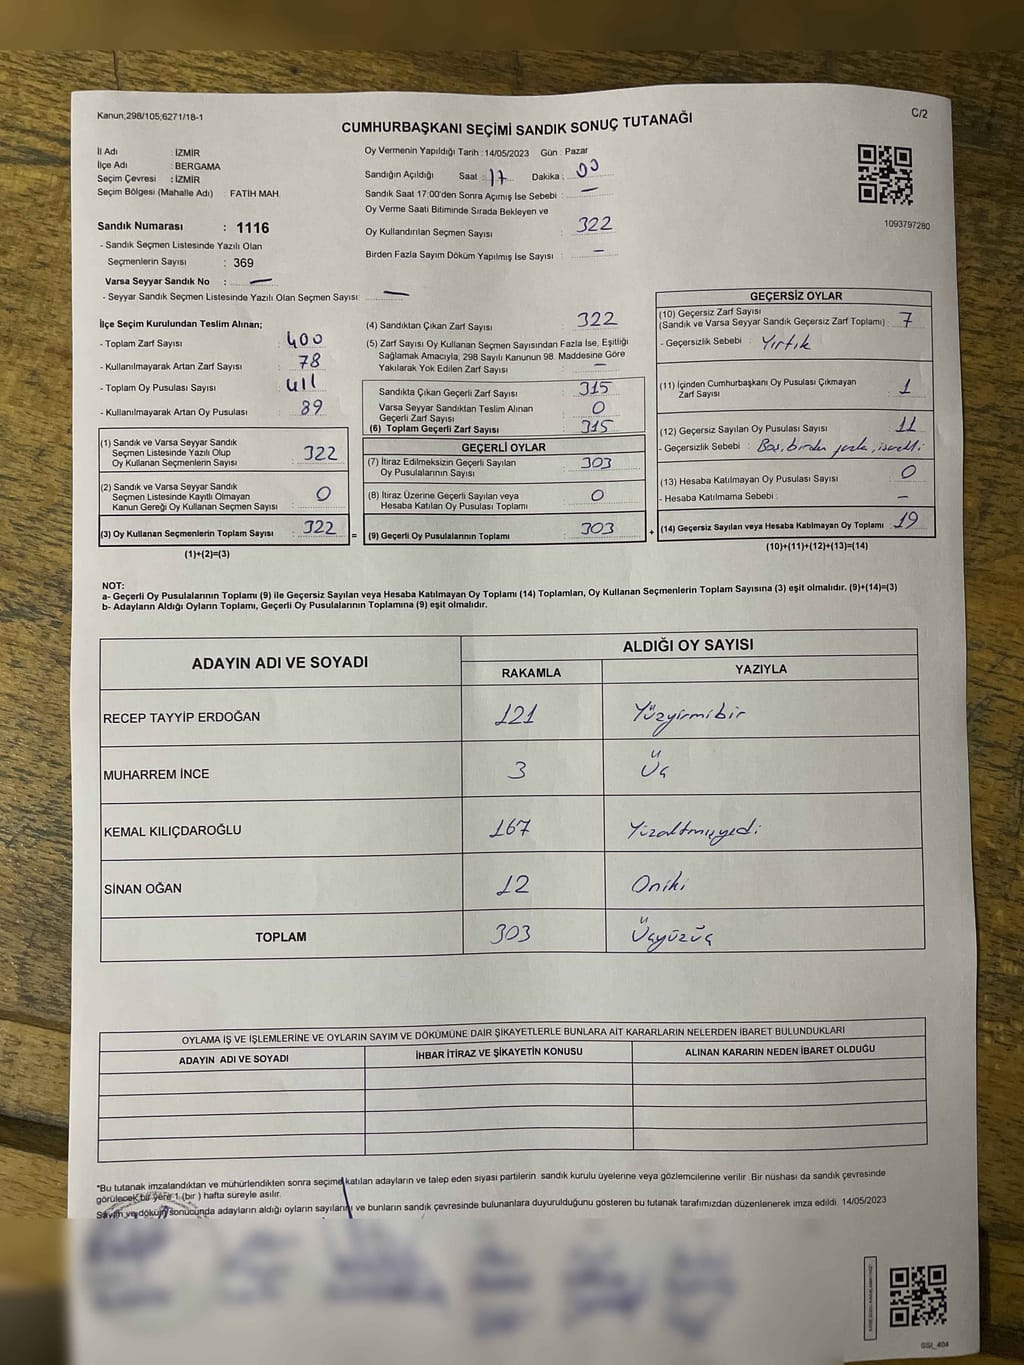 Kanun,298/105;6271/18-1
C/2
CUMHURBAŞKANI SEÇİMİ SANDIK SONUÇ TUTANAĞI
İl Adı : İZMİR
İlçe Adı : BERGAMA
Seçim Çevresi : İZMİR
Seçim Bölgesi (Mahalle Adı) : FATİH MAH.
Oy Vermenin Yapıldığı Tarih : 14/05/2023 Gün : Pazar
Sandığın Açıldığı Saat : 17 Dakika : 00
Sandık Saat 17:00'den Sonra Açımış İse Sebebi : —
Oy Verme Saati Bitiminde Sırada Bekleyen ve
Oy Kullandırılan Seçmen Sayısı : 322
Birden Fazla Sayım Döküm Yapılmış İse Sayısı : —
1093797280
Sandık Numarası : 1116
- Sandık Seçmen Listesinde Yazılı Olan
Seçmenlerin Sayısı : 369
Varsa Seyyar Sandık No : —
- Seyyar Sandık Seçmen Listesinde Yazılı Olan Seçmen Sayısı: —
İlçe Seçim Kurulundan Teslim Alınan;
- Toplam Zarf Sayısı : 400
- Kullanılmayarak Artan Zarf Sayısı : 78
- Toplam Oy Pusulası Sayısı : 411
- Kullanılmayarak Artan Oy Pusulası : 89
(1) Sandık ve Varsa Seyyar Sandık
Seçmen Listesinde Yazılı Olup
Oy Kullanan Seçmenlerin Sayısı : 322
(2) Sandık ve Varsa Seyyar Sandık
Seçmen Listesinde Kayıtlı Olmayan
Kanun Gereği Oy Kullanan Seçmen Sayısı : 0
(3) Oy Kullanan Seçmenlerin Toplam Sayısı : 322
(1)+(2)=(3)
(4) Sandıktan Çıkan Zarf Sayısı : 322
(5) Zarf Sayısı Oy Kullanan Seçmen Sayısından Fazla İse, Eşitliği
Sağlamak Amacıyla, 298 Sayılı Kanunun 98. Maddesine Göre
Yakılarak Yok Edilen Zarf Sayısı : —
Sandıkta Çıkan Geçerli Zarf Sayısı : 315
Varsa Seyyar Sandıktan Teslim Alınan
Geçerli Zarf Sayısı : 0
(6) Toplam Geçerli Zarf Sayısı : 315
GEÇERLİ OYLAR
(7) İtiraz Edilmeksizin Geçerli Sayılan
Oy Pusulalarının Sayısı : 303
(8) İtiraz Üzerine Geçerli Sayılan veya
Hesaba Katılan Oy Pusulası Toplamı : 0
= (9) Geçerli Oy Pusulalarının Toplamı : 303
GEÇERSİZ OYLAR
(10) Geçersiz Zarf Sayısı
(Sandık ve Varsa Seyyar Sandık Geçersiz Zarf Toplamı) : 7
- Geçersizlik Sebebi : Yırtık
(11) İçinden Cumhurbaşkanı Oy Pusulası Çıkmayan
Zarf Sayısı : 1
(12) Geçersiz Sayılan Oy Pusulası Sayısı : 11
- Geçersizlik Sebebi : Boş, birden fazla, işaretli
(13) Hesaba Katılmayan Oy Pusulası Sayısı : 0
- Hesaba Katılmama Sebebi : —
+ (14) Geçersiz Sayılan veya Hesaba Katılmayan Oy Toplamı : 19
(10)+(11)+(12)+(13)=(14)
NOT:
a- Geçerli Oy Pusulalarının Toplamı (9) ile Geçersiz Sayılan veya Hesaba Katılmayan Oy Toplamı (14) Toplamları, Oy Kullanan Seçmenlerin Toplam Sayısına (3) eşit olmalıdır. (9)+(14)=(3)
b- Adayların Aldığı Oyların Toplamı, Geçerli Oy Pusulalarının Toplamına (9) eşit olmalıdır.
ADAYIN ADI VE SOYADI ALDIĞI OY SAYISI
RAKAMLA YAZIYLA
RECEP TAYYİP ERDOĞAN 121 Yüzyirmibir
MUHARREM İNCE 3 Üç
KEMAL KILIÇDAROĞLU 167 Yüzaltmışyedi
SİNAN OĞAN 12 Oniki
TOPLAM 303 Üçyüzüç
OYLAMA İŞ VE İŞLEMLERİNE VE OYLARIN SAYIM VE DÖKÜMÜNE DAİR ŞİKAYETLERLE BUNLARA AİT KARARLARIN NELERDEN İBARET BULUNDUKLARI
ADAYIN ADI VE SOYADI İHBAR İTİRAZ VE ŞİKAYETİN KONUSU ALINAN KARARIN NEDEN İBARET OLDUĞU
*Bu tutanak imzalandıktan ve mühürlendikten sonra seçime katılan adayların ve talep eden siyasi partilerin sandık kurulu üyelerine veya gözlemcilerine verilir. Bir nüshası da sandık çevresinde
görülecek bir yere 1 (bir ) hafta süreyle asılır.
Sayım ve döküm sonucunda adayların aldığı oyların sayılarını ve bunların sandık çevresinde bulunanlara duyurulduğunu gösteren bu tutanak tarafımızdan düzenlenerek imza edildi. 14/05/2023
GSI_404